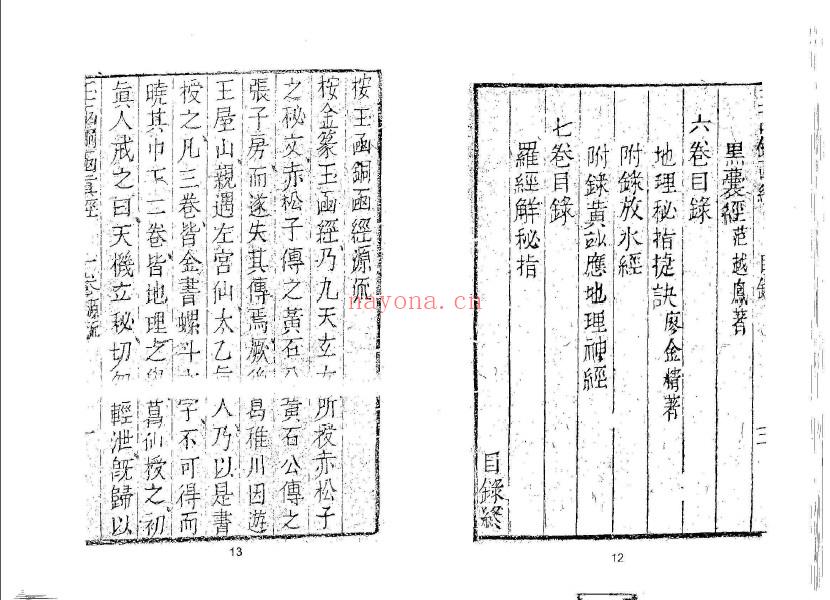 黑囊經范越鳳著
六卷目錄
地理秘指捷訣廖金精著
附錄放水經
附錄黃訟應地理神經
七卷目錄
羅經解秘指
目錄終
12
按玉函銅函經源流
按金篆玉函經乃九天玄女所授赤松子
之秘文赤松子傳之黃石公黃石公傳之
張子房而遂失其傳焉厥後葛稚川因遊
王屋山親遇左宮仙太乙真人乃以是書
授之凡三卷皆金書螺斗文字不可得而
曉其巾下二卷皆地理之葛仙授之初
眞人戒之曰天機玄秘切勿輕泄旣歸以
玉函銅函眞經 一卷源流
13
nayona.cn